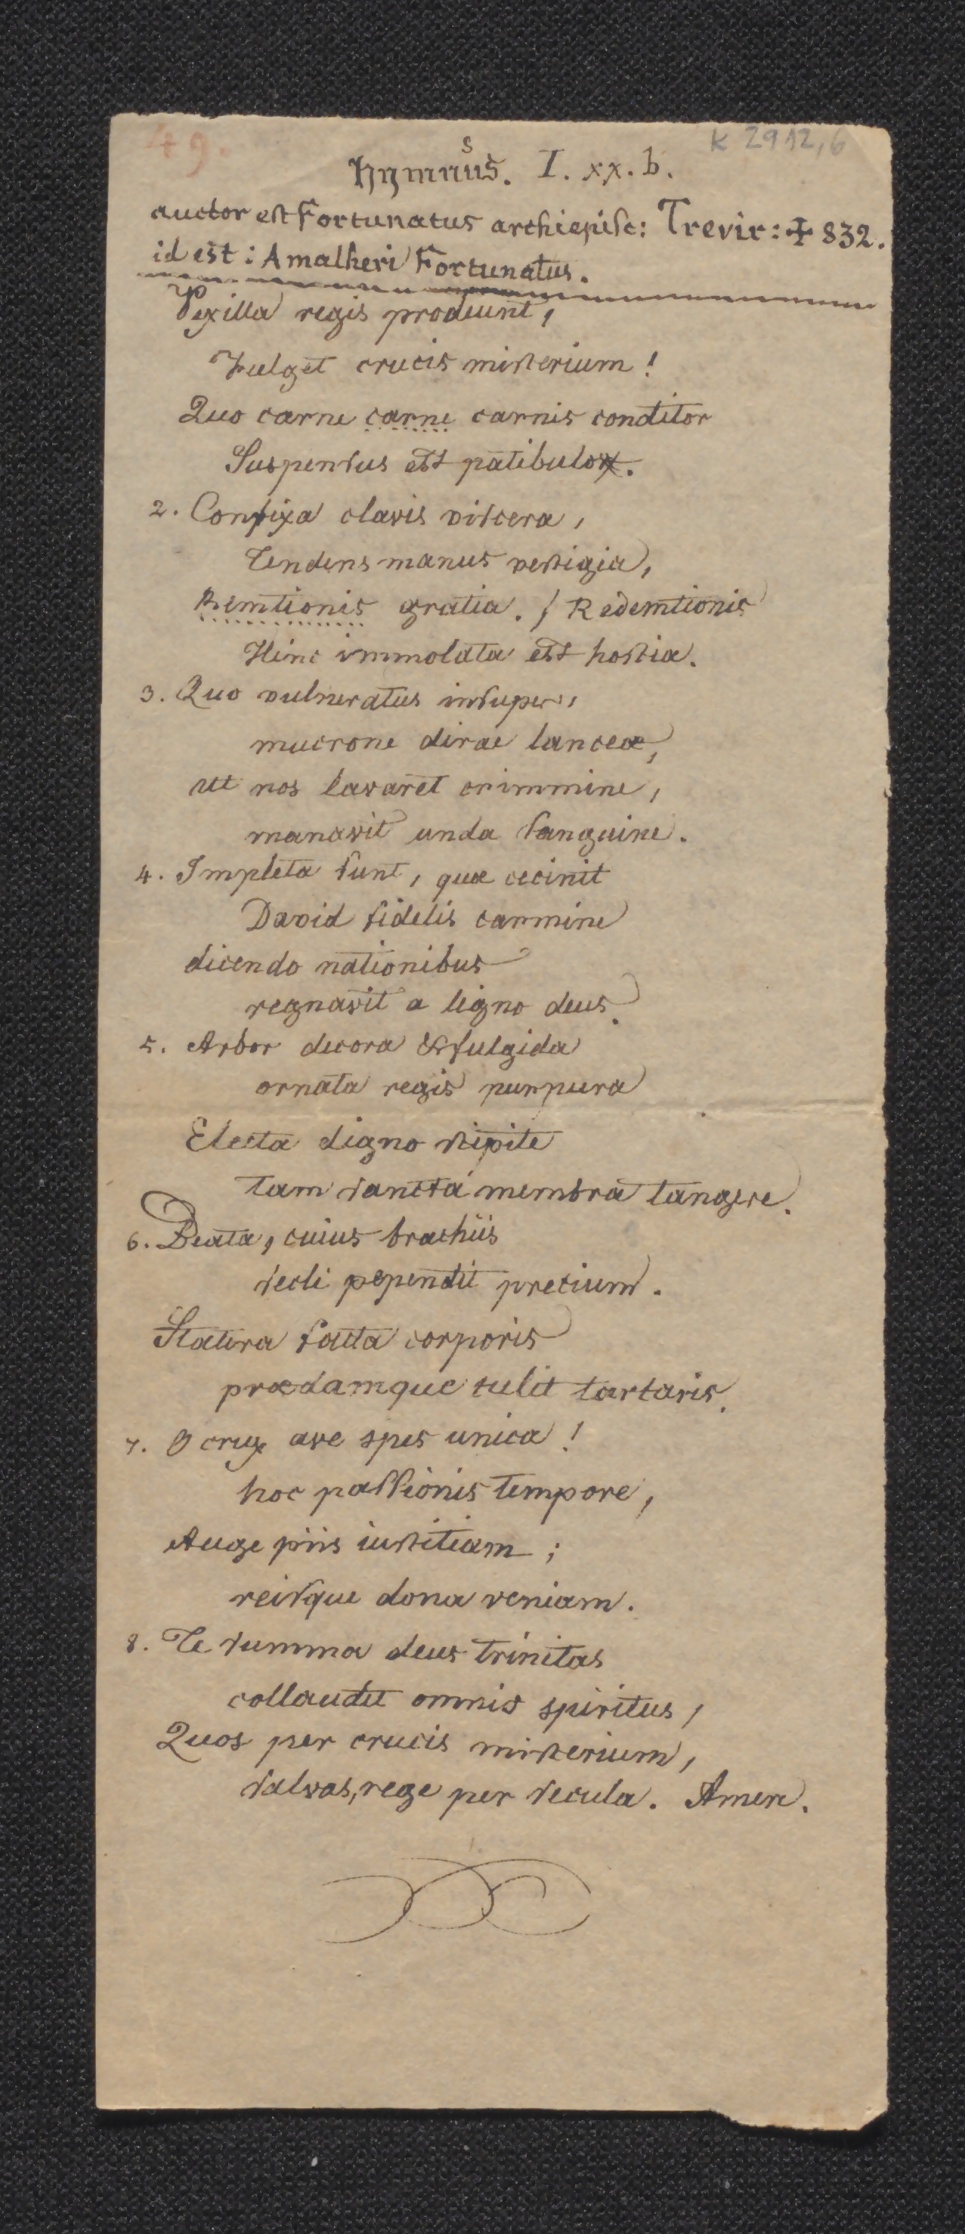 49.
K 2912,6
hymnus. I. xx. b.
auctor est Fortunatus archiepisc: Trevir: ✝ 832.
id est: Amalheri Fortunatus.
Vexilla regis prodeunt,
Fulget crucis misterium!
Quo carne carne carnis conditor
Suspensus est patibulo.
2. Confixa clavis viscera,
Tendens manus vestigia,
Remtionis gratia. / Redemtionis
Hinc immolata est hostia.
3. Quo vulneratus insuper,
mucrone dirae lanceæ,
ut nos lavaret crimmine,
manavit unda sanguine.
4. Impleta sunt, quæ cecinit
David fidelis carmine
dicendo nationibus
regnavit a ligno deus.
5. Arbor decora & fulgida
ornata regis purpura
Electa digno stipite
tam sancta membra tangere.
6. Beata, cuius brachiis
secli pependit precium.
Statera facta corporis
prædamque tulit tartaris.
7. O crux ave spes unica!
hoc passionis tempore,
Auge piis iustitiam;
reisque dona veniam.
8. Te summa deus trinitas
collaudet omnis spiritus,
Quos per crucis misterium,
salvas, rege per secula. Amen.